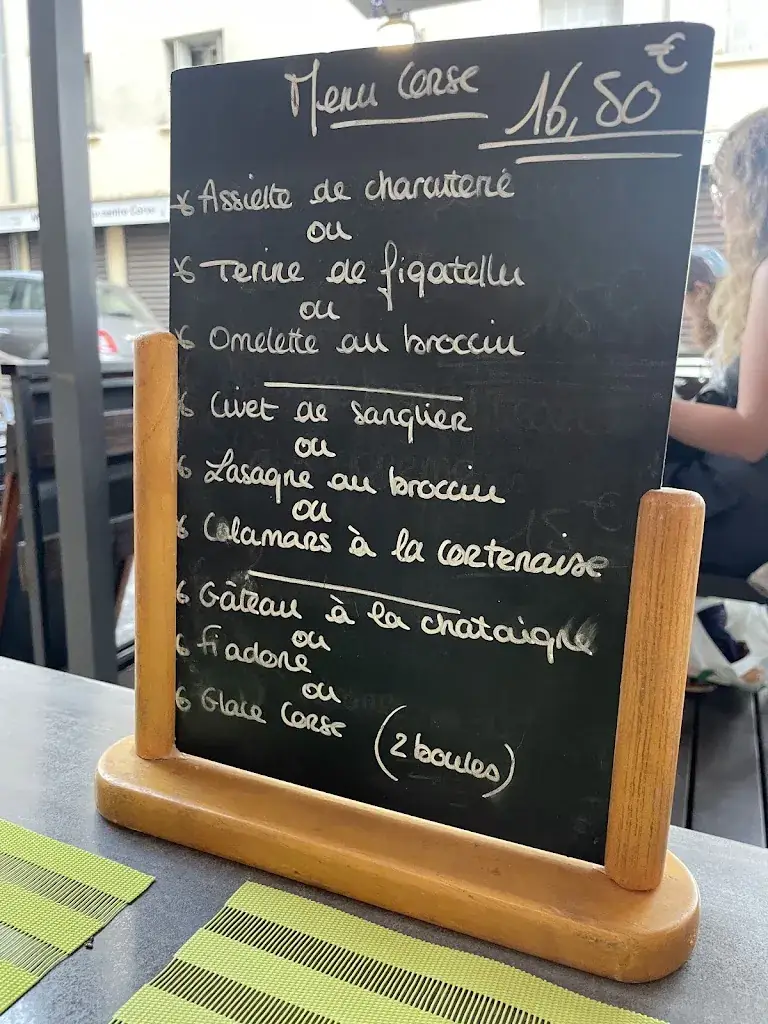 Menu Corse 16,80 €
* Assiette de charcuterie
ou
* Terine de figatellu
ou
* Omelette au brocciu
* Civet de sanglier
ou
* Lasagne au brocciu
ou
* Calamars à la cortenaise
* Gâteau à la chataigne
ou
* Fiadone
ou
* Glace Corse (2 boules)